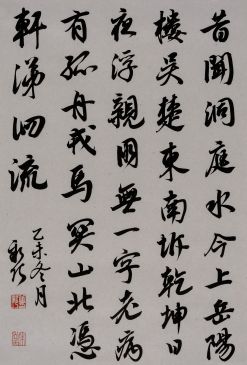 昔聞洞庭水今上岳陽
樓吴楚東南坼乾坤日
夜浮親朋無一字老病
有孤舟戎馬関山北憑
軒涕泗流
乙未冬月